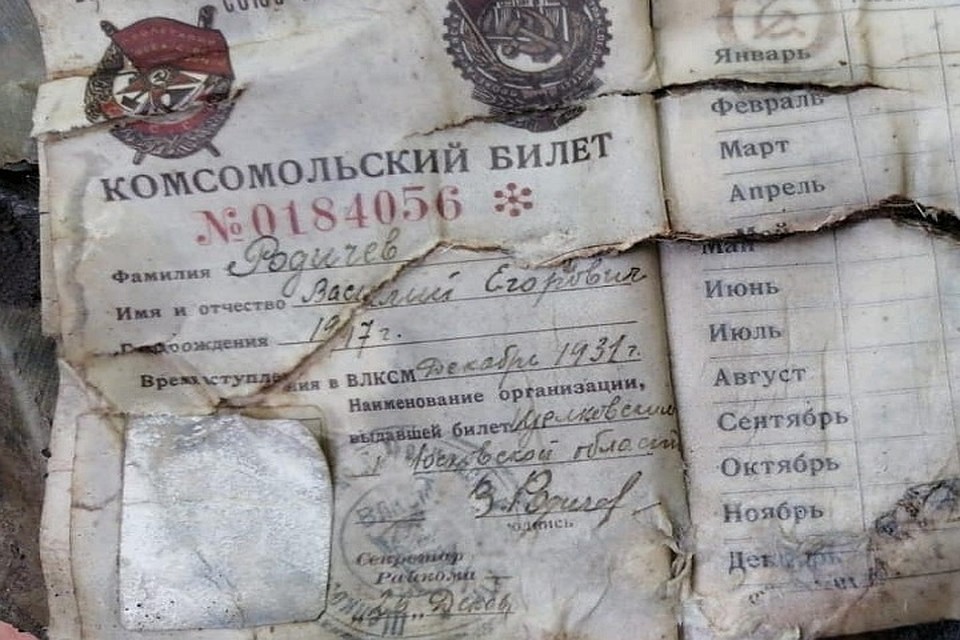 КОМСОМОЛЬСКИЙ БИЛЕТ
№0184056
Фамилия Родичев
Имя и отчество Василий Егорович
Год рождения 1917 г.
Время вступления в ВЛКСМ Декабрь 1931 г.
Наименование организации,
выдавшей билет Щелковский
Московской области
подпись
Секретарь
Райкома
Январь
Февраль
Март
Апрель
Май
Июнь
Июль
Август
Сентябрь
Октябрь
Ноябрь
Декабрь